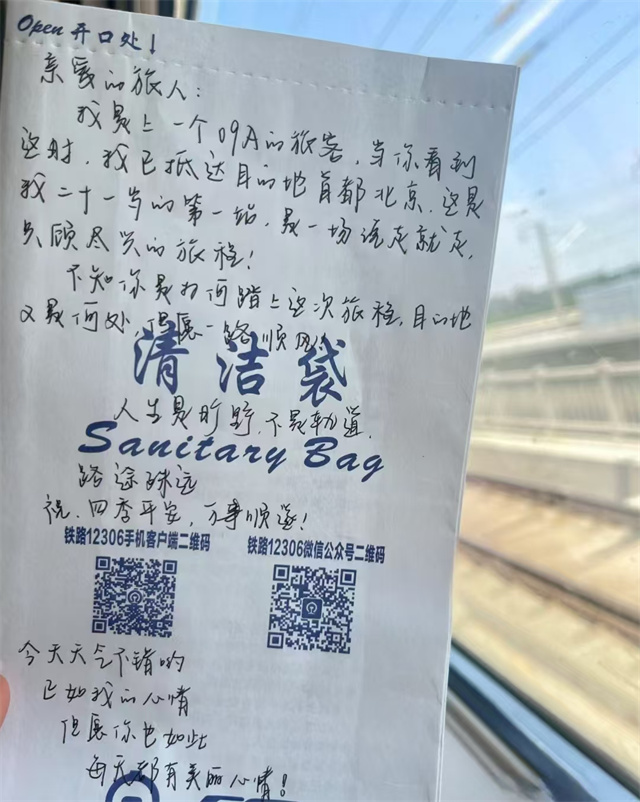 Open 开口处↓
亲爱的旅人：
我是上一个09A的旅客，当你看到
这时，我已抵达目的地首都北京．这是
我二十一岁的第一站，是一场说走就走，
只顾尽兴的旅程！
不知你是为何踏上这次旅程，目的地
又是何处，但愿一路顺风！
清洁袋
人生是旷野，不是轨道，
Sanitary Bag
路途殊远
祝．四季平安，万事顺遂！
铁路12306手机客户端二维码 铁路12306微信公众号二维码
今天天气不错哟
已如我的心情
但愿你也如此
每天都有美丽心情！